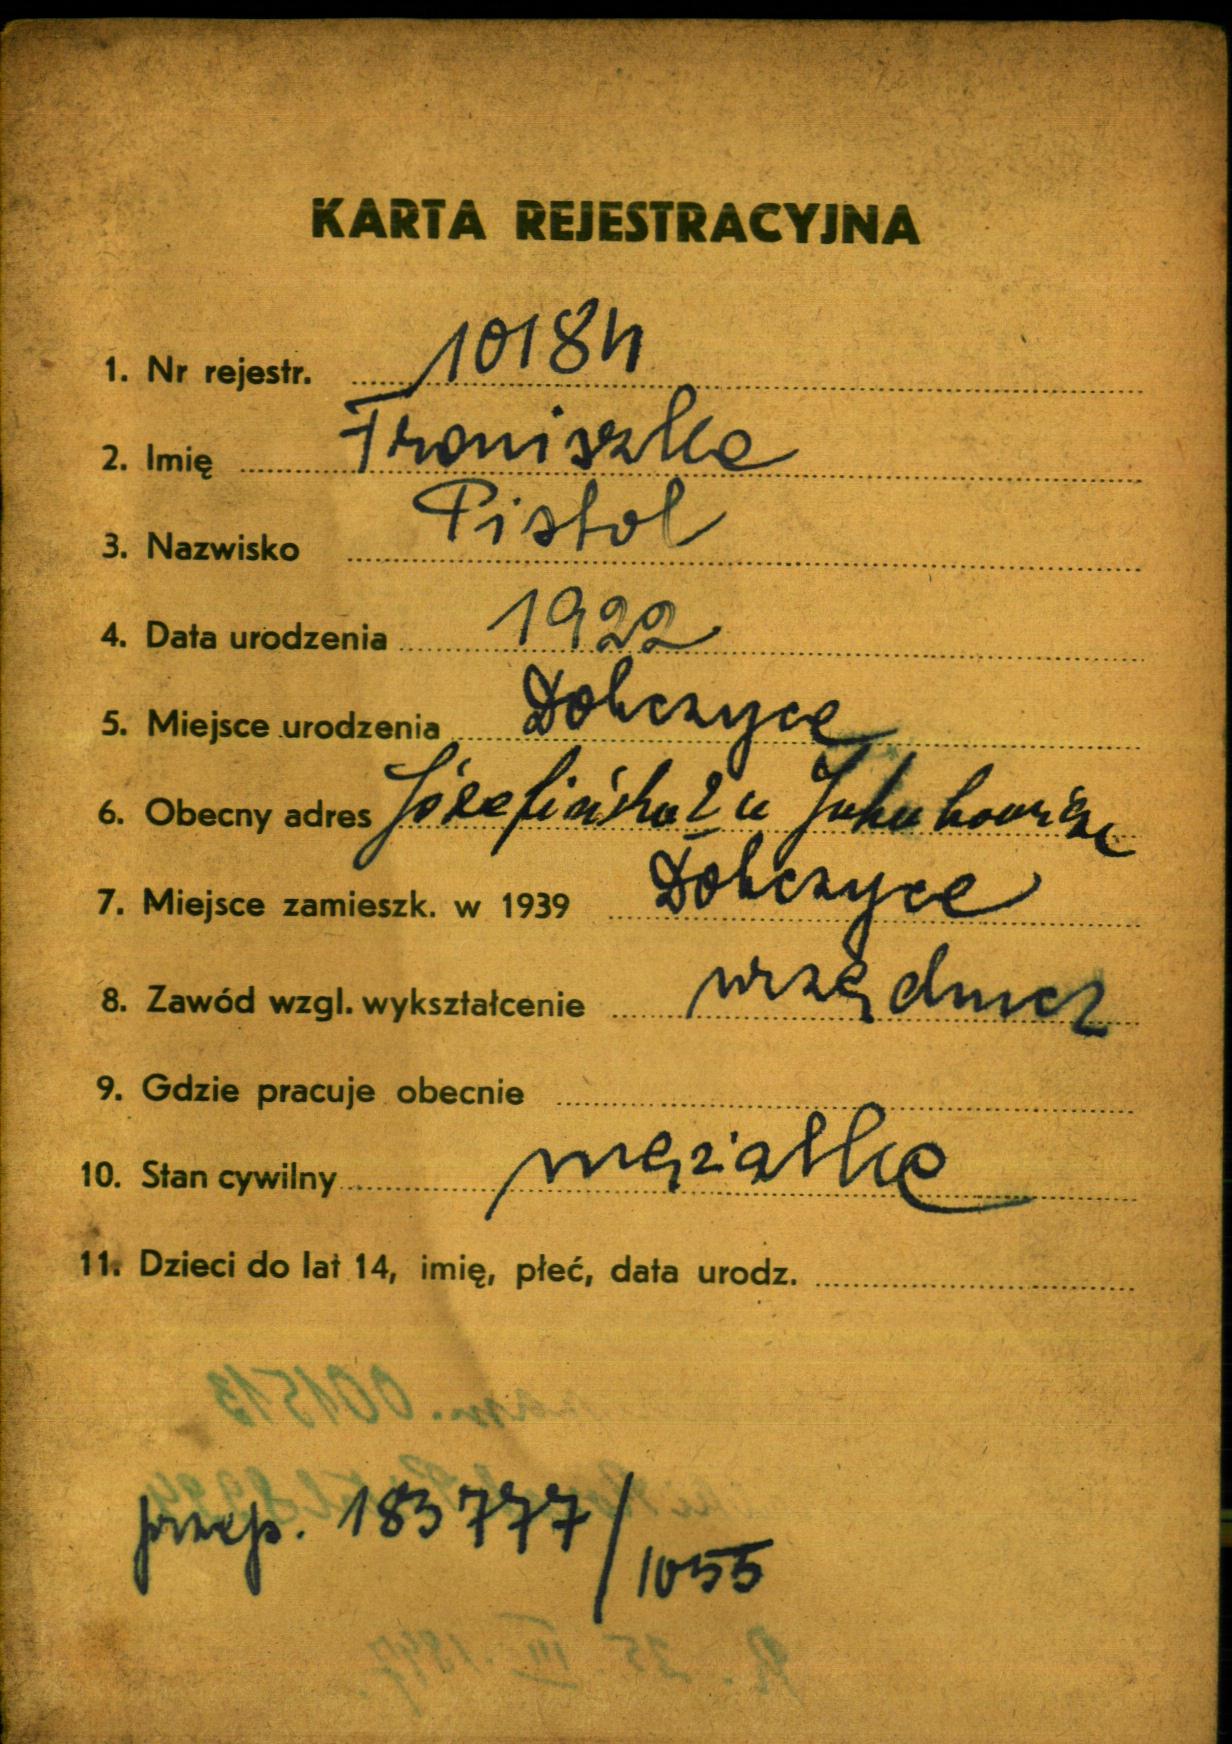 KARTA REJESTRACYJNA
1. Nr rejestr. 10184
2. Imię Franiszka
3. Nazwisko Pistol
4. Data urodzenia 1922
5. Miejsce urodzenia Dobczyce
6. Obecny adres Józefińska 2 u Jakubowicz
7. Miejsce zamieszk. w 1939 Dobczyce
8. Zawód wzgl. wykształcenie urzędnicz
9. Gdzie pracuje obecnie
10. Stan cywilny mężatka
11. Dzieci do lat 14, imię, płeć, data urodz.
001513
przep. 183777/1055
25. III. 1947.